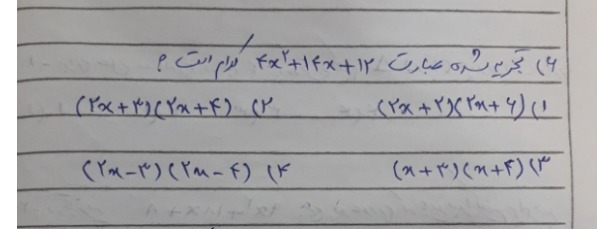 ۶) تجزیه شده عبارت ۴x²+۱۴x+۱۲ کدام است ؟
۱) (۲x+۲)(۲x+۶) ۲) (۲x+۳)(۲x+۴)
۳) (x+۳)(x+۴) ۴) (۲x-۳)(۲x-۴)